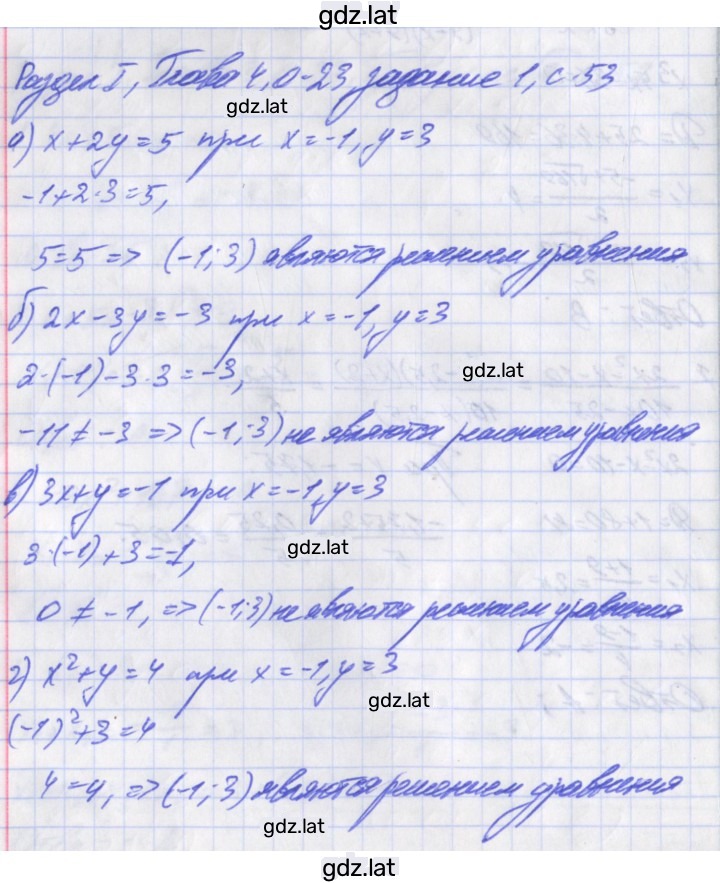 gdz.lat
Раздел I, Глава 4, О-23, задание 1, с. 53
gdz.lat
а) x+2y=5 при x=-1, y=3
-1+2·3=5,
5=5 => (-1; 3) являются решением уравнения
б) 2x-3y=-3 при x=-1, y=3
2·(-1)-3·3=-3,
gdz.lat
-11≠-3 => (-1; 3) не являются решением уравнения
в) 3x+y=-1 при x=-1, y=3
3·(-1)+3=-1,
gdz.lat
0≠-1, => (-1; 3) не являются решением уравнения
г) x²+y=4 при x=-1, y=3
gdz.lat
(-1)²+3=4
4=4, => (-1; 3) являются решением уравнения
gdz.lat
gdz.lat